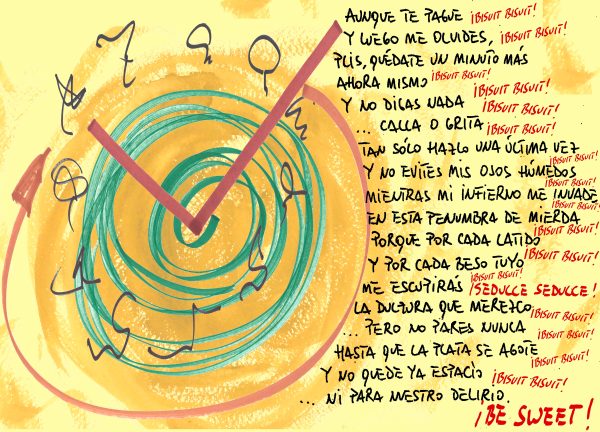 AUNQUE TE PAGUE ¡BISUIT BISUIT!
Y LUEGO ME OLVIDES, ¡BISUIT BISUIT!
PLIS, QUÉDATE UN MINUTO MÁS
AHORA MISMO ¡BISUIT BISUIT!
Y NO DIGAS NADA ¡BISUIT BISUIT!
... CALLA O GRITA ¡BISUIT BISUIT!
¡BISUIT BISUIT!
TAN SÓLO HAZLO UNA ÚLTIMA VEZ
Y NO EVITES MIS OJOS HÚMEDOS ¡BISUIT BISUIT!
MIENTRAS MI INFIERNO ME INVADE ¡BISUIT BISUIT!
EN ESTA PENUMBRA DE MIERDA ¡BISUIT BISUIT!
PORQUE POR CADA LATIDO ¡BISUIT BISUIT!
Y POR CADA BESO TUYO ¡BISUIT BISUIT!
ME ESCUPIRÁS ¡BISUIT BISUIT! ¡SEDUCCE SEDUCCE!
LA DULTURA QUE MEREZCO ¡BISUIT BISUIT!
... PERO NO PARES NUNCA ¡BISUIT BISUIT!
HASTA QUE LA PLATA SE AGOTE ¡BISUIT BISUIT!
Y NO QUEDE YA ESPACIO ¡BISUIT BISUIT!
... NI PARA NUESTRO DELIRIO.
¡BE SWEET!